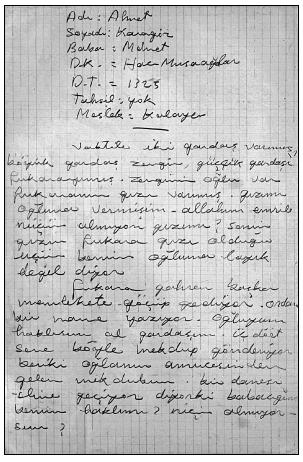 Adı: Ahmet
Soyadı: Karagöz
Baba: Mehmet
D.K. = Hacı Musaoğlar
D.T. = 1325
Tahsil: yok
Meslek: Kalaycı
Vaktile iki gardaş varımış,
böyük gardaş zengin, güççük gardaşı
fukaraymış. zenginin oğlu var
fukaranın gızı varmış. gızımı
oğluna vermişim - allahın emrile
niçin almıyon gızımı? senin
gızın fukara gızı olduğu
için benim oğluma layık
değil diyor
Fukara gahren
memlekete göçüp gediyor. ordan
bir name yazıyor. Oğluyun
haklısını al gardaşım üç dört
sene böyle mekdup gönderiyor
beriki oğlanın amıcesinden
gelen mekdubun bir danesi
eline geçiyor diyorki babacığım
benim haklım? niçin almıyor-
sun?